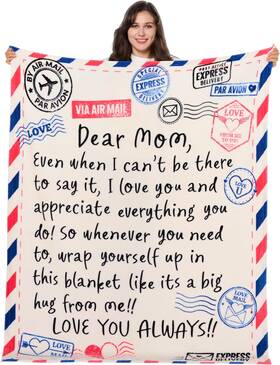 BY AIR MAIL
PAR AVION
SPECIAL
EXPRESS
DELIVERY
EXPRESS
DELIVERY
PAR AVION
VIA AIR MAIL
LOVE
LOVE
Dear Mom,
Even when I can't be there
to say it, I love you and
appreciate everything you
do! So whenever you need
to, wrap yourself up in
this blanket like its a big
hug from me!!
LOVE YOU ALWAYS!!
LOVE
LOVE
EXPRESS
DELIVERY